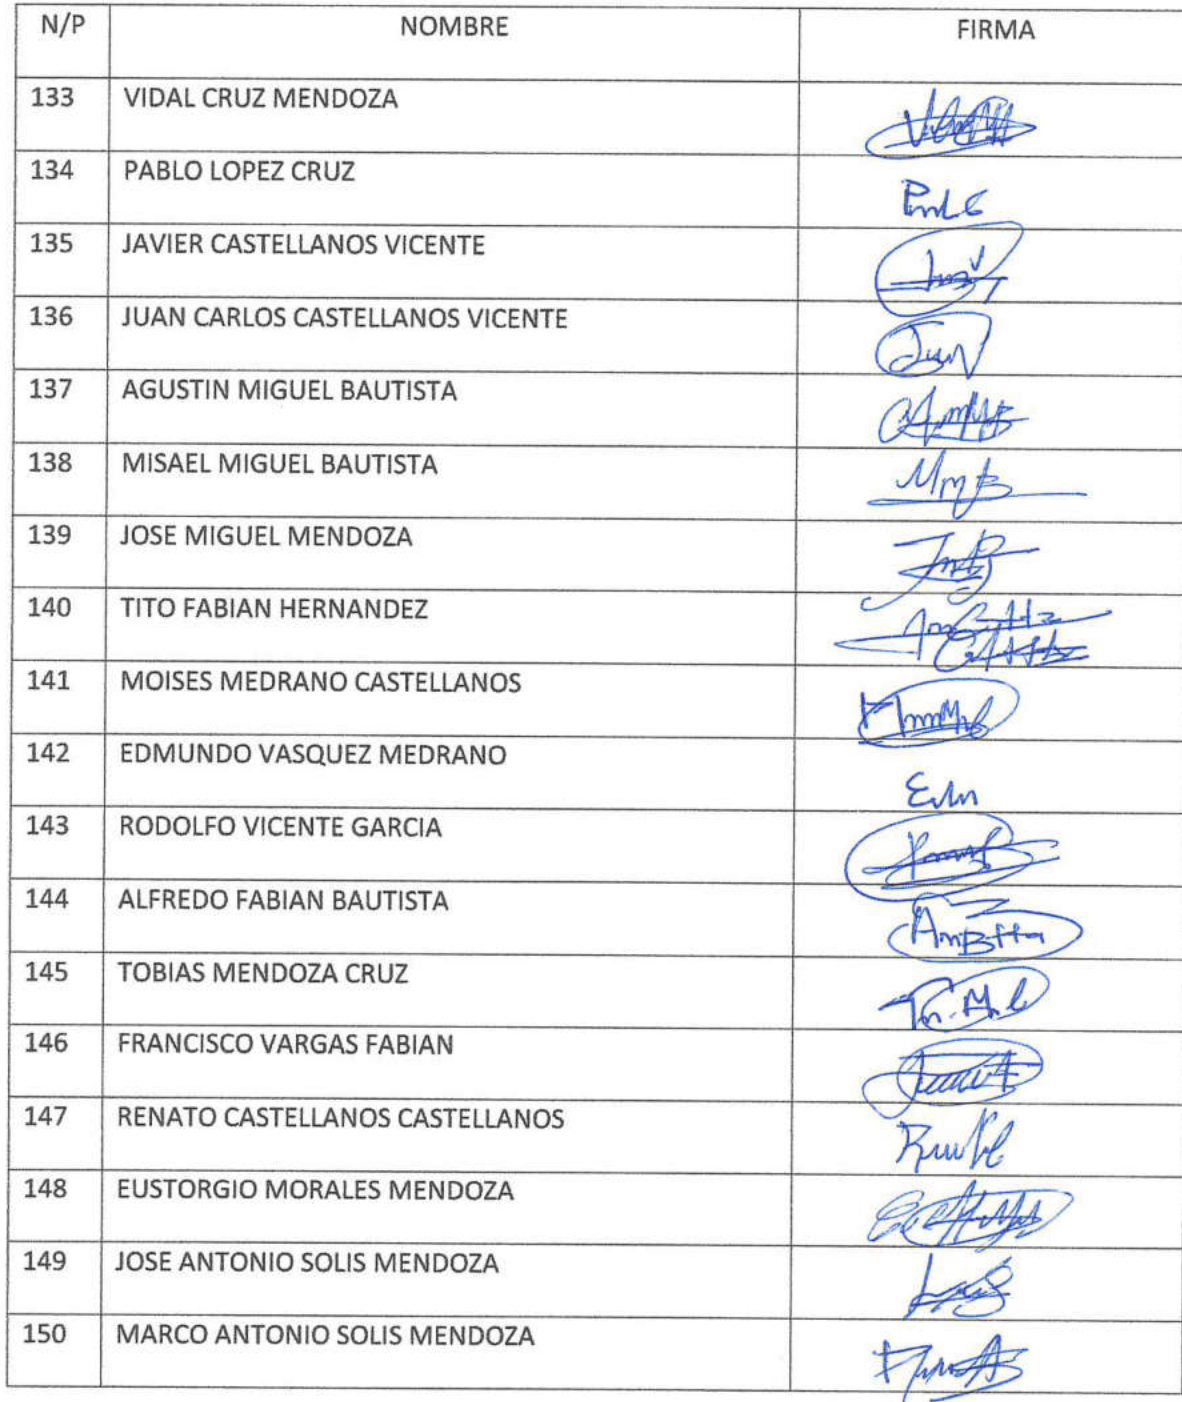 N/P NOMBRE FIRMA
133 VIDAL CRUZ MENDOZA
134 PABLO LOPEZ CRUZ
135 JAVIER CASTELLANOS VICENTE
136 JUAN CARLOS CASTELLANOS VICENTE
137 AGUSTIN MIGUEL BAUTISTA
138 MISAEL MIGUEL BAUTISTA
139 JOSE MIGUEL MENDOZA
140 TITO FABIAN HERNANDEZ
141 MOISES MEDRANO CASTELLANOS
142 EDMUNDO VASQUEZ MEDRANO
143 RODOLFO VICENTE GARCIA
144 ALFREDO FABIAN BAUTISTA
145 TOBIAS MENDOZA CRUZ
146 FRANCISCO VARGAS FABIAN
147 RENATO CASTELLANOS CASTELLANOS
148 EUSTORGIO MORALES MENDOZA
149 JOSE ANTONIO SOLIS MENDOZA
150 MARCO ANTONIO SOLIS MENDOZA